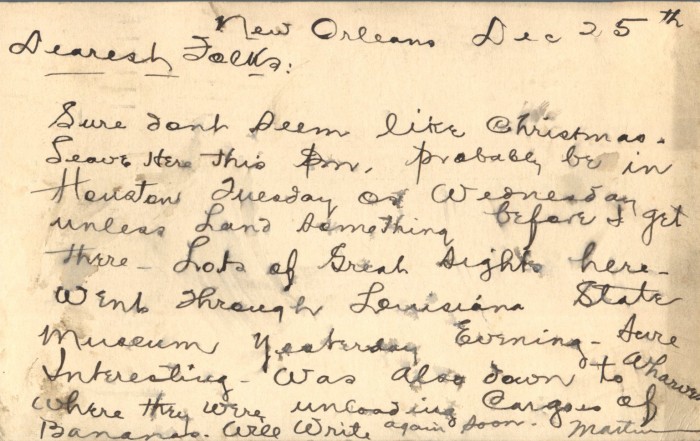 New Orleans Dec 25th
Dearest Folks:
Sure dont seem like Christmas.
Leave Here this Pm, probably be in
Houston Tuesday or Wednesday
unless Land something before I get
there - Lots of Great sights here -
Went through Louisiana State
Museum Yesterday Evening - Sure
Interesting - Was also down to Wharves
where they were unloading Cargoes of
Bananas. Will Write again soon. Martin